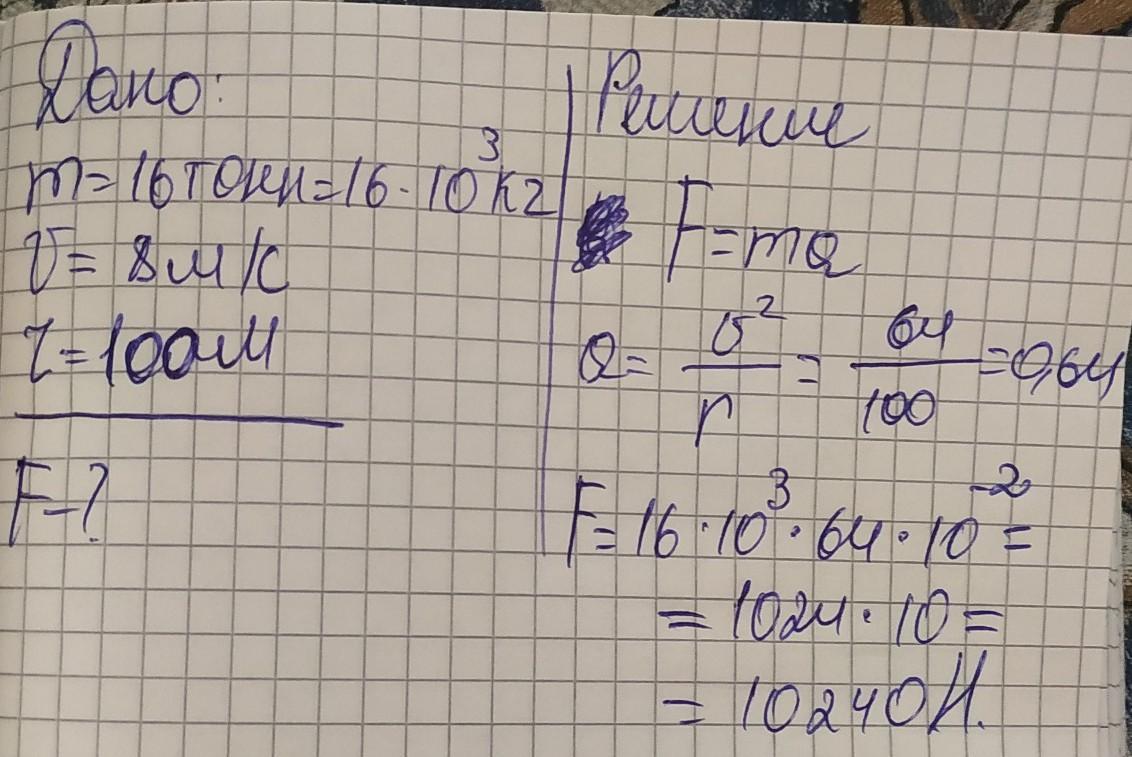 Дано:
m = 16 тонн = 16 · 10³ кг
υ = 8 м/с
r = 100 м
F - ?
Решение
F = ma
a = υ²/r = 64/100 = 0,64
F = 16 · 10³ · 64 · 10⁻² =
= 1024 · 10 =
= 10240 Н.